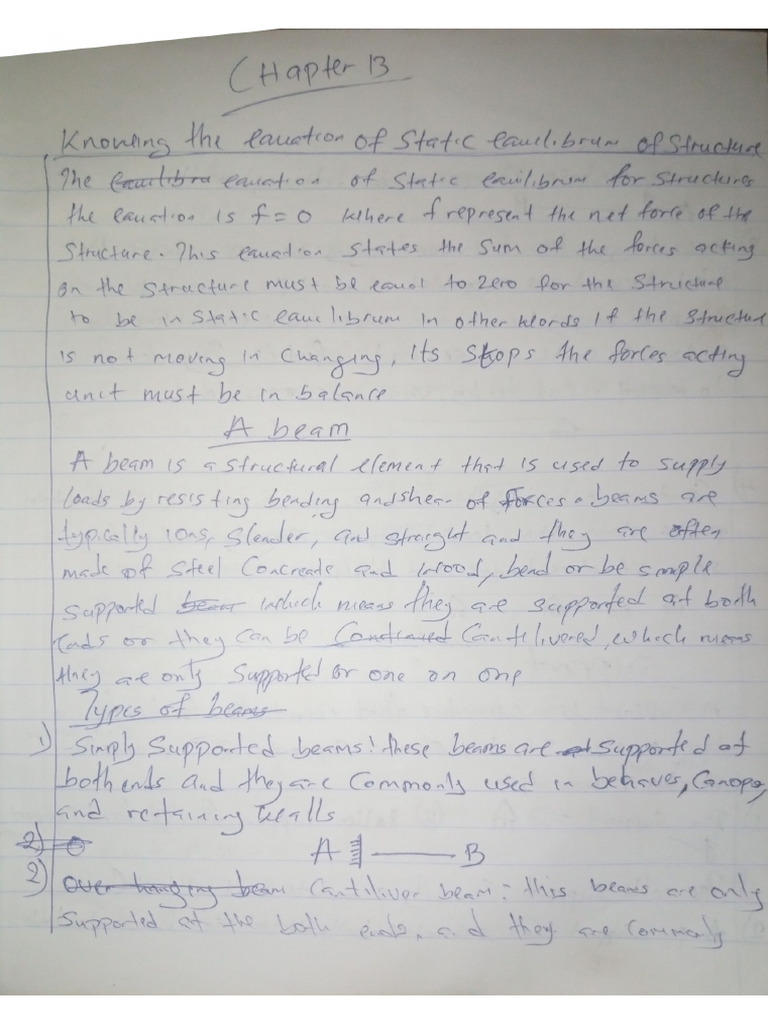 Chapter 13
Knowing the eauation of static eauilibrum of structure
The eauilibru eauation of static eauilibrum for structures
the eauation is f=0 where f represent the net force of the
structure. This eauation states the sum of the forces acting
on the structure must be eaual to zero for the structure
to be in static eauilibrum in other words if the structure
is not moving in changing, its stops the forces acting
unit must be in balance
A beam
A beam is a structural element that is used to supply
loads by resisting bending and shear of forces. beams are
typically lons, slender, and straight and they are often
made of steel concreate and wood, bend or be simple
supported beam which means they are supported at both
ends or they can be cantilivered, which means
they are only supported or one on one
Types of beams
1) Simply supported beams: these beams are at supported at
both ends and they are commonly used in behaves, canopy,
and retaining walls
2)
A B
2) over hanging beam cantiliver beam: this beams are only
supported at the both ends, and they are commonly